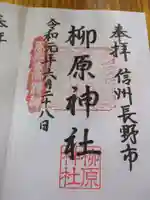 奉拝
信州長野市
柳原神社
令和元年六月二十八日
柳原
神社